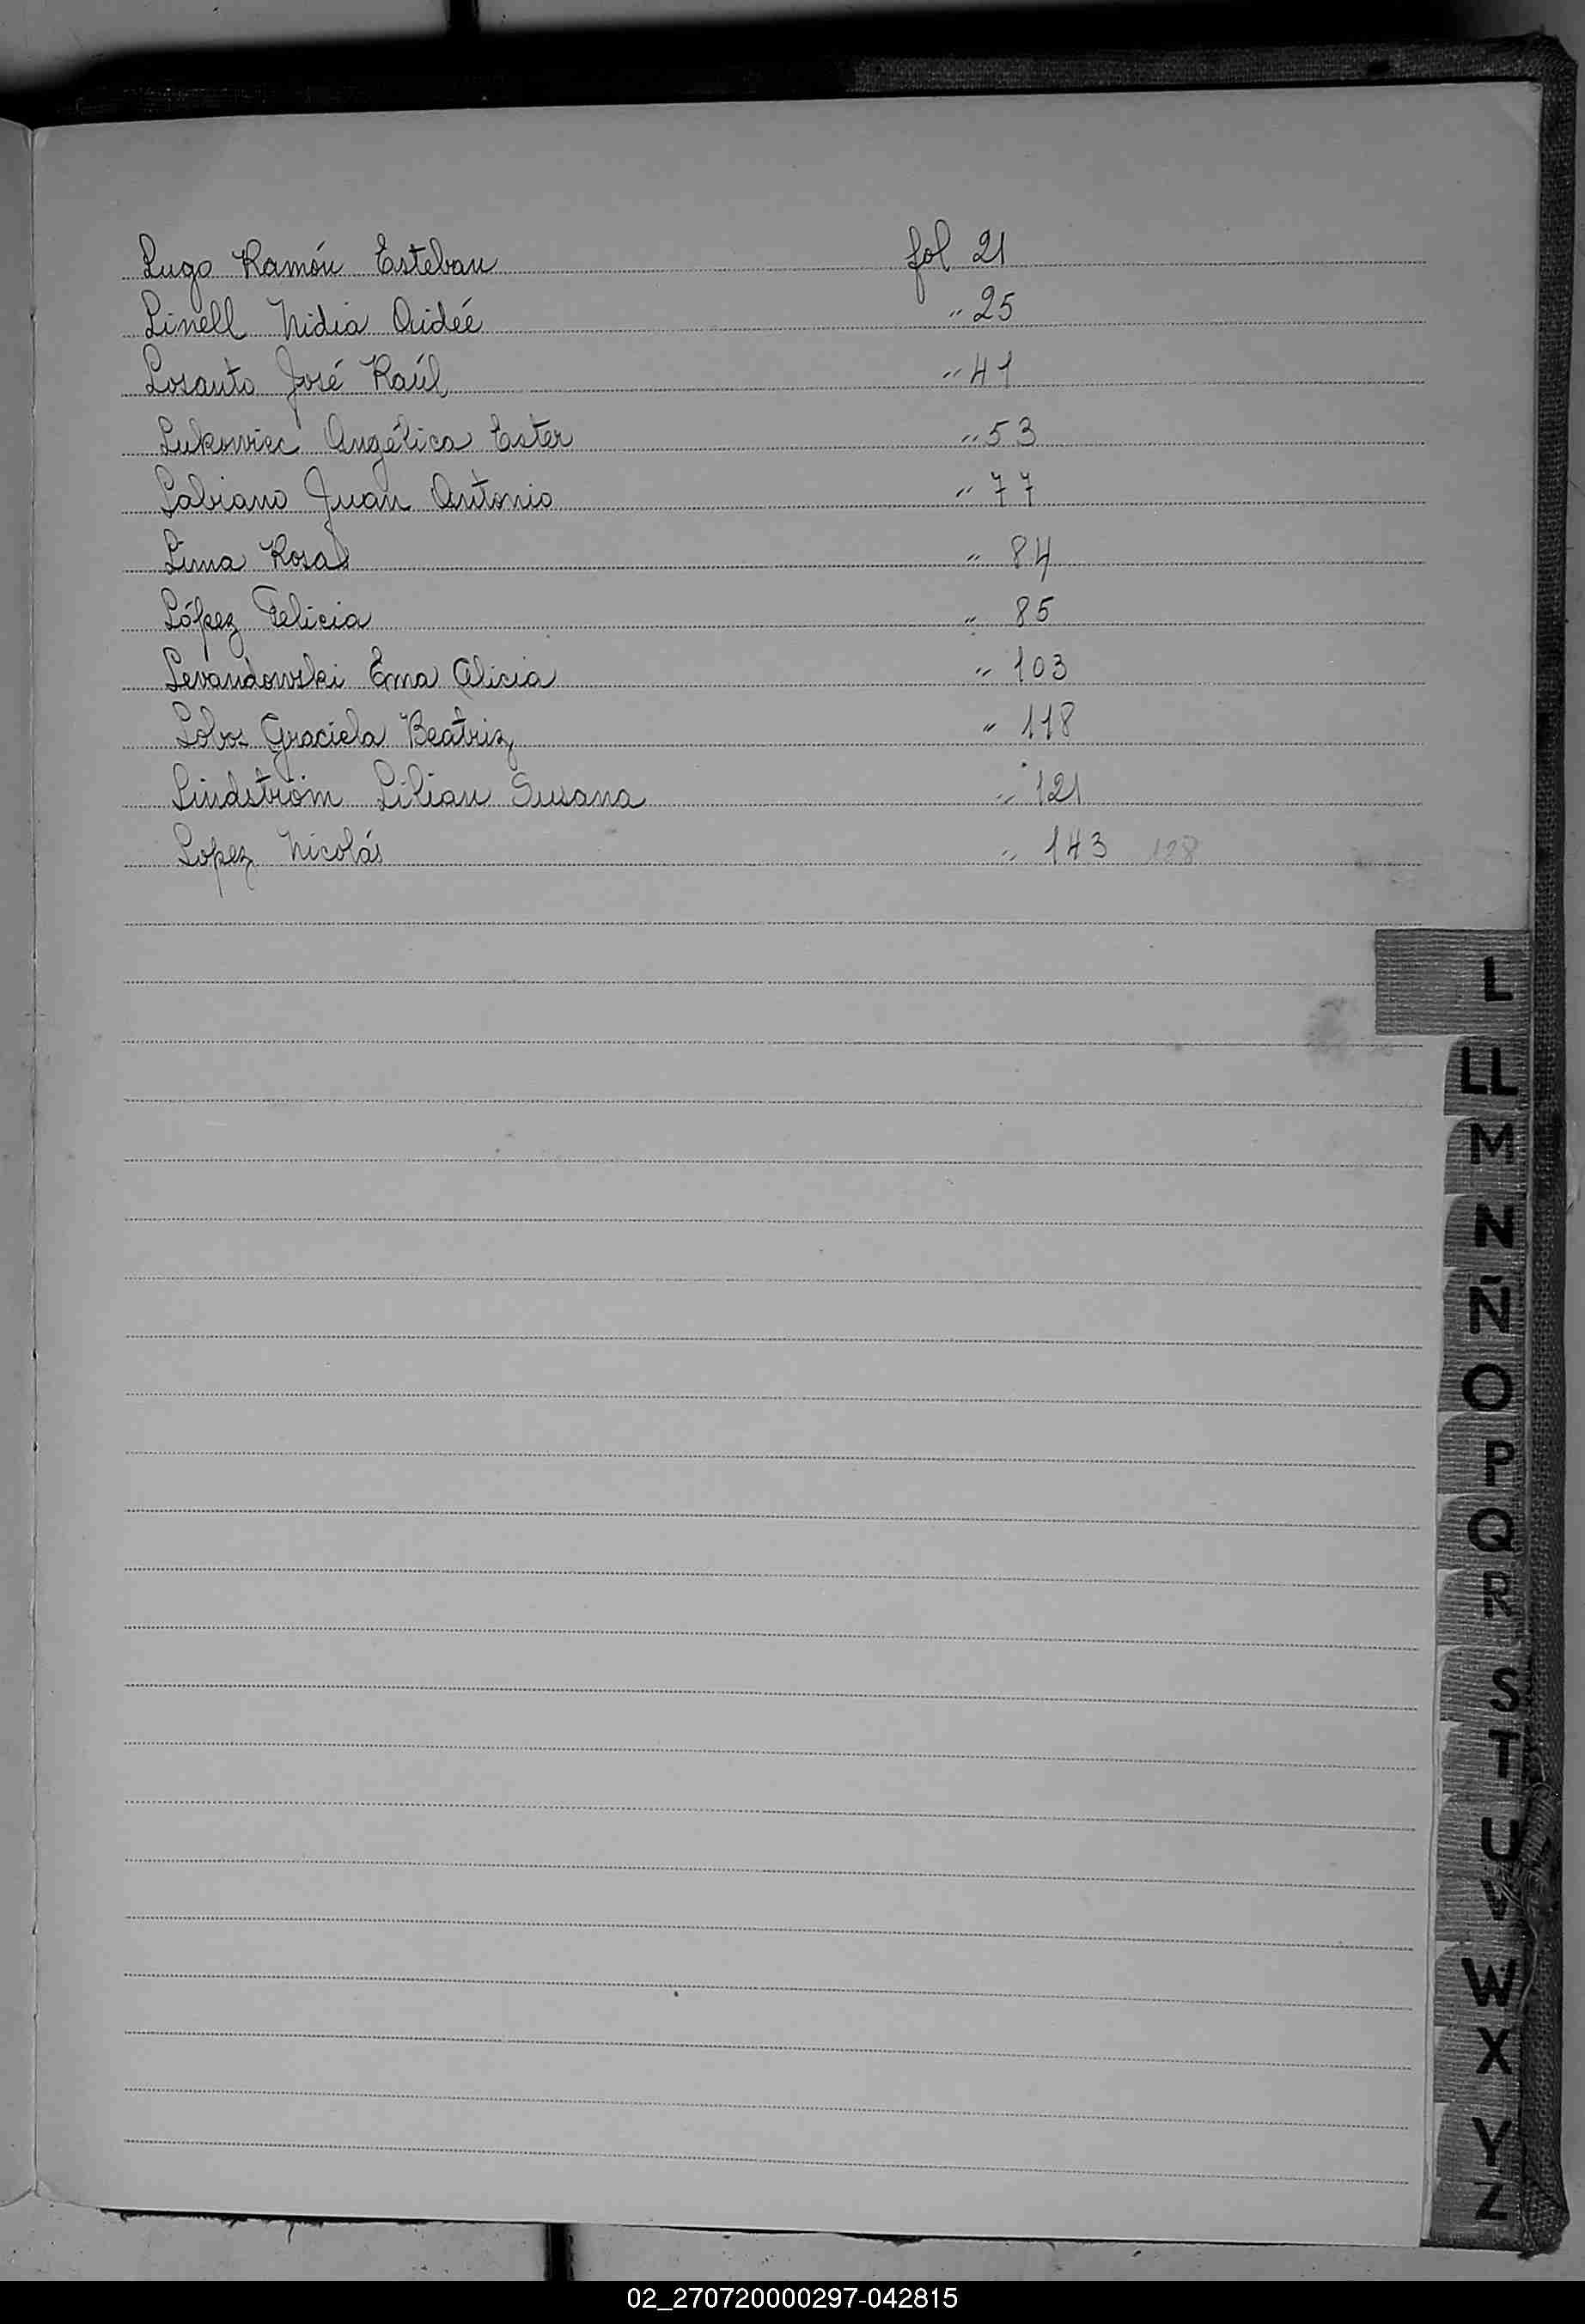 Lugo Ramón Esteban fol 21
Linell Nidia Aideé " 25
Losanto José Raúl " 41
Lukowiec Angélica Ester " 53
Labiano Juan Antonio " 77
Lima Rosa " 84
López Felicia " 85
Levandowski Ema Alicia " 103
Lobos Graciela Beatriz " 118
Lindström Lilian Susana " 121
Lopez Nicolás " 143 128
L
LL
M
N
Ñ
O
P
Q
R
S
T
U
V
W
X
Y
Z
02_270720000297-042815